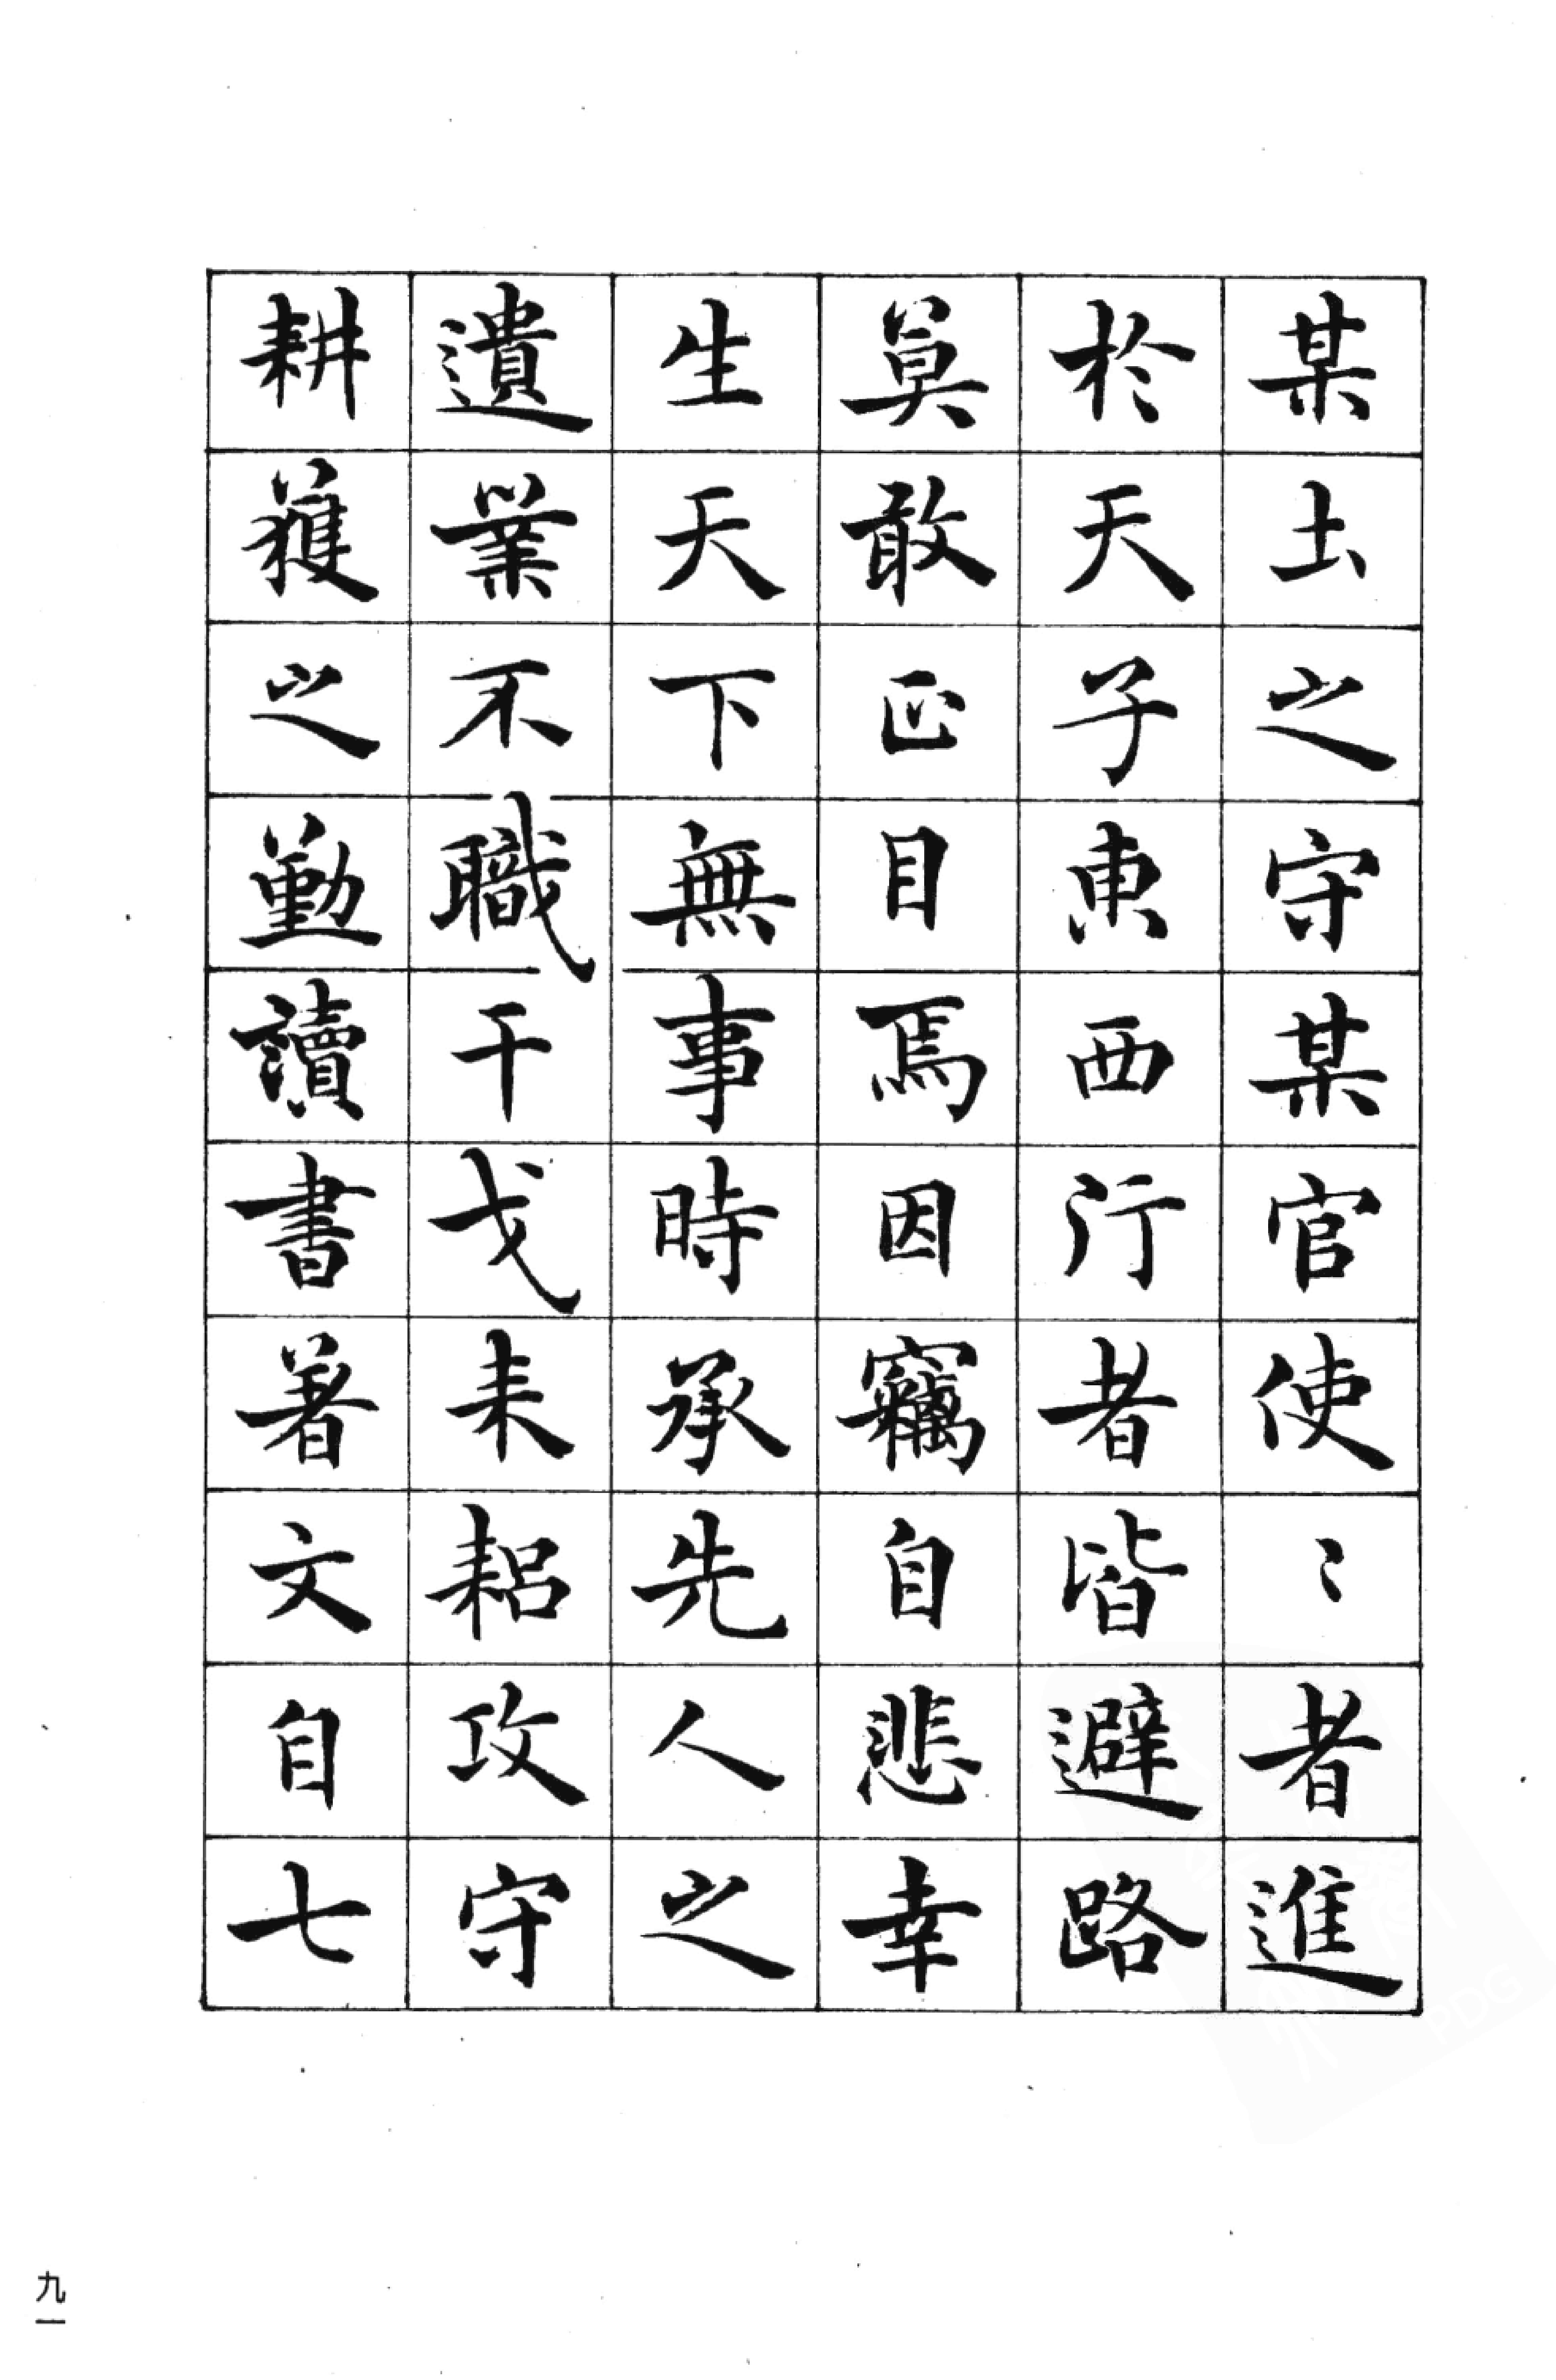 某土之守某官使〻者進
於天子東西行者皆避路
莫敢正目焉因竊自悲幸
生天下無事時承先人之
遺業不職干戈耒耜攻守
耕穫之勤讀書著文自七
九一